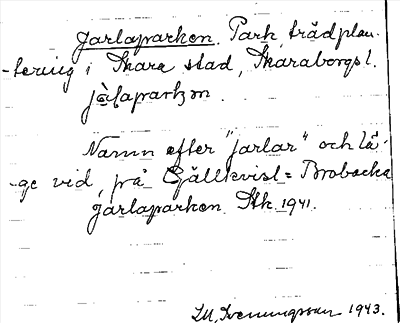 Jarlaparken. Park, trädplan-
tering i Skara stad, Skaraborgs l.
Namn efter "jarlar" och lä-
ge vid, på Gällkvist = Brobacka
Jarlaparken. Stk. 1941.
Sveningsson 1943.